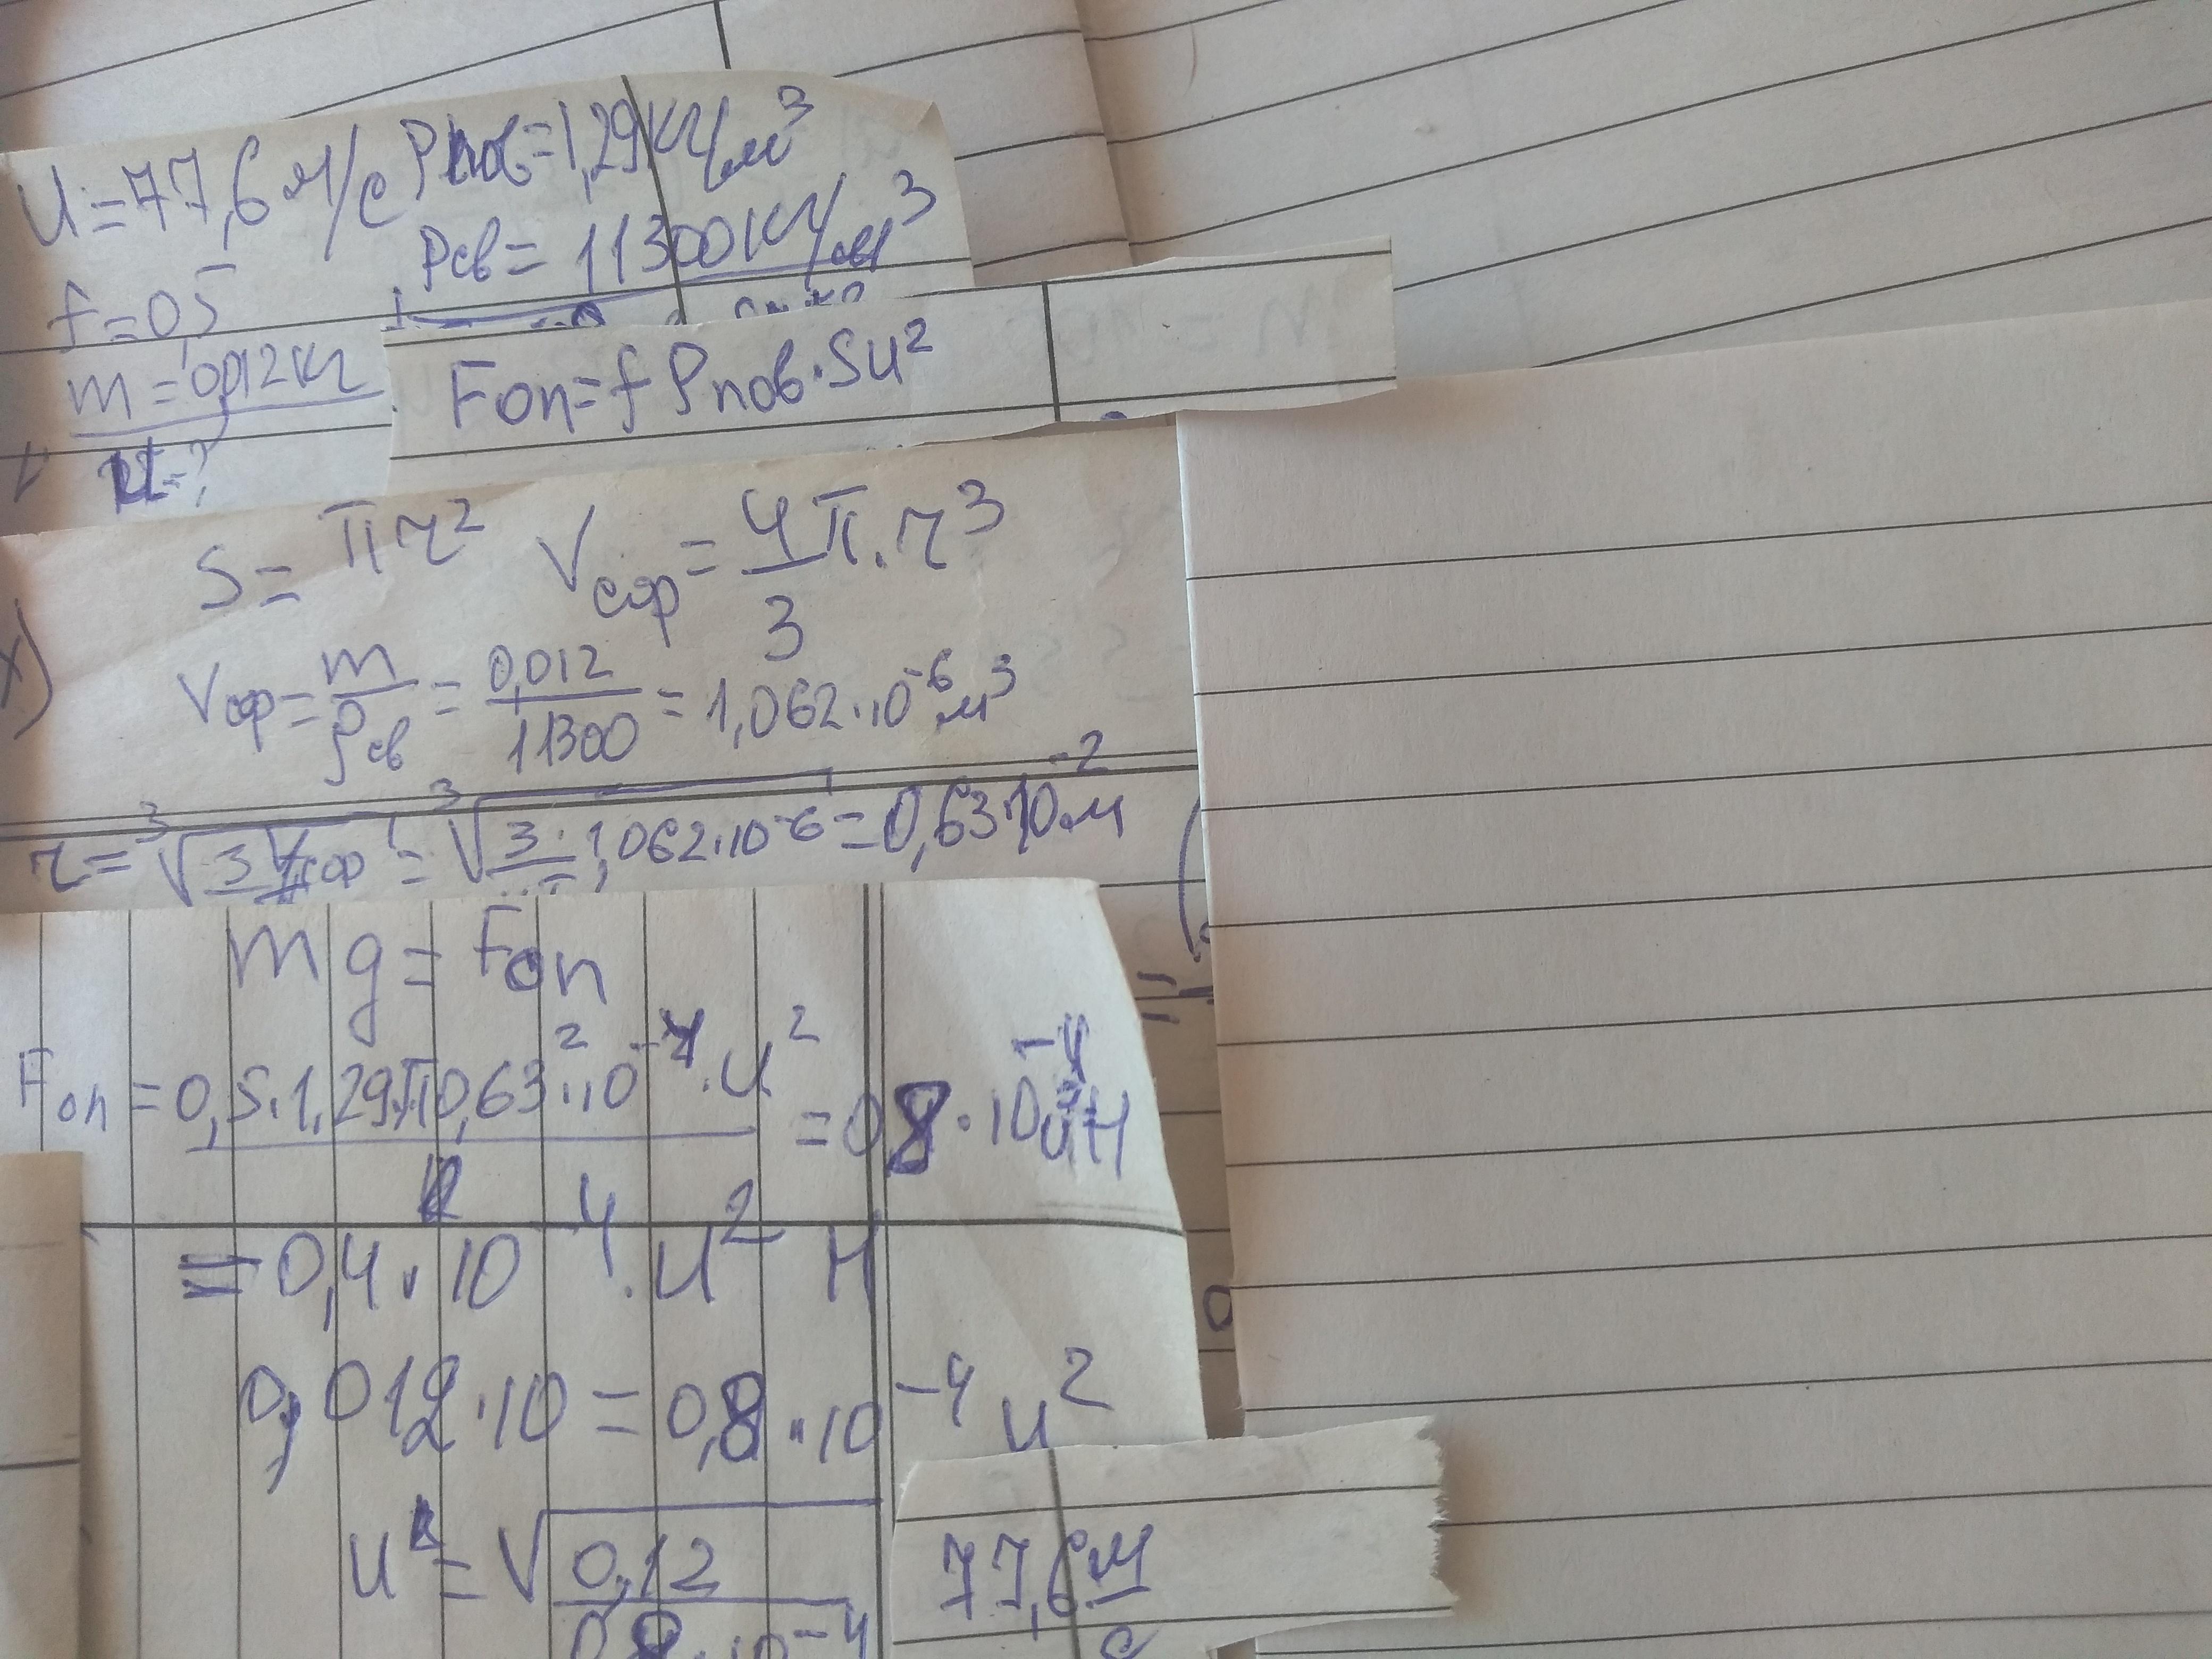 u = 77,6 м/с ρпов = 1,29 кг/м³
ρсв = 11300 кг/м³
f = 0,5
m = 0,012 кг
Fоп = f ρпов · Su²
u - ?
S = πr² Vсвр = 4π · r³ / 3
Vсвр = m / ρсв = 0,012 / 11300 = 1,062 · 10⁻⁶ м³
r = ³√3Vсвр = ³√3 · 1,062 · 10⁻⁶ = 0,63 · 10⁻² м
mg = Fоп
Fоп = 0,5 · 1,29 · π 0,63² · 10⁻⁴ · u² = 0,8 · 10⁻⁴ u² Н
= 0,4 · 10⁻⁴ · u² Н
0,012 · 10 = 0,8 · 10⁻⁴ u²
u = √0,12 / 0,8 · 10⁻⁴ 77,6 м/с